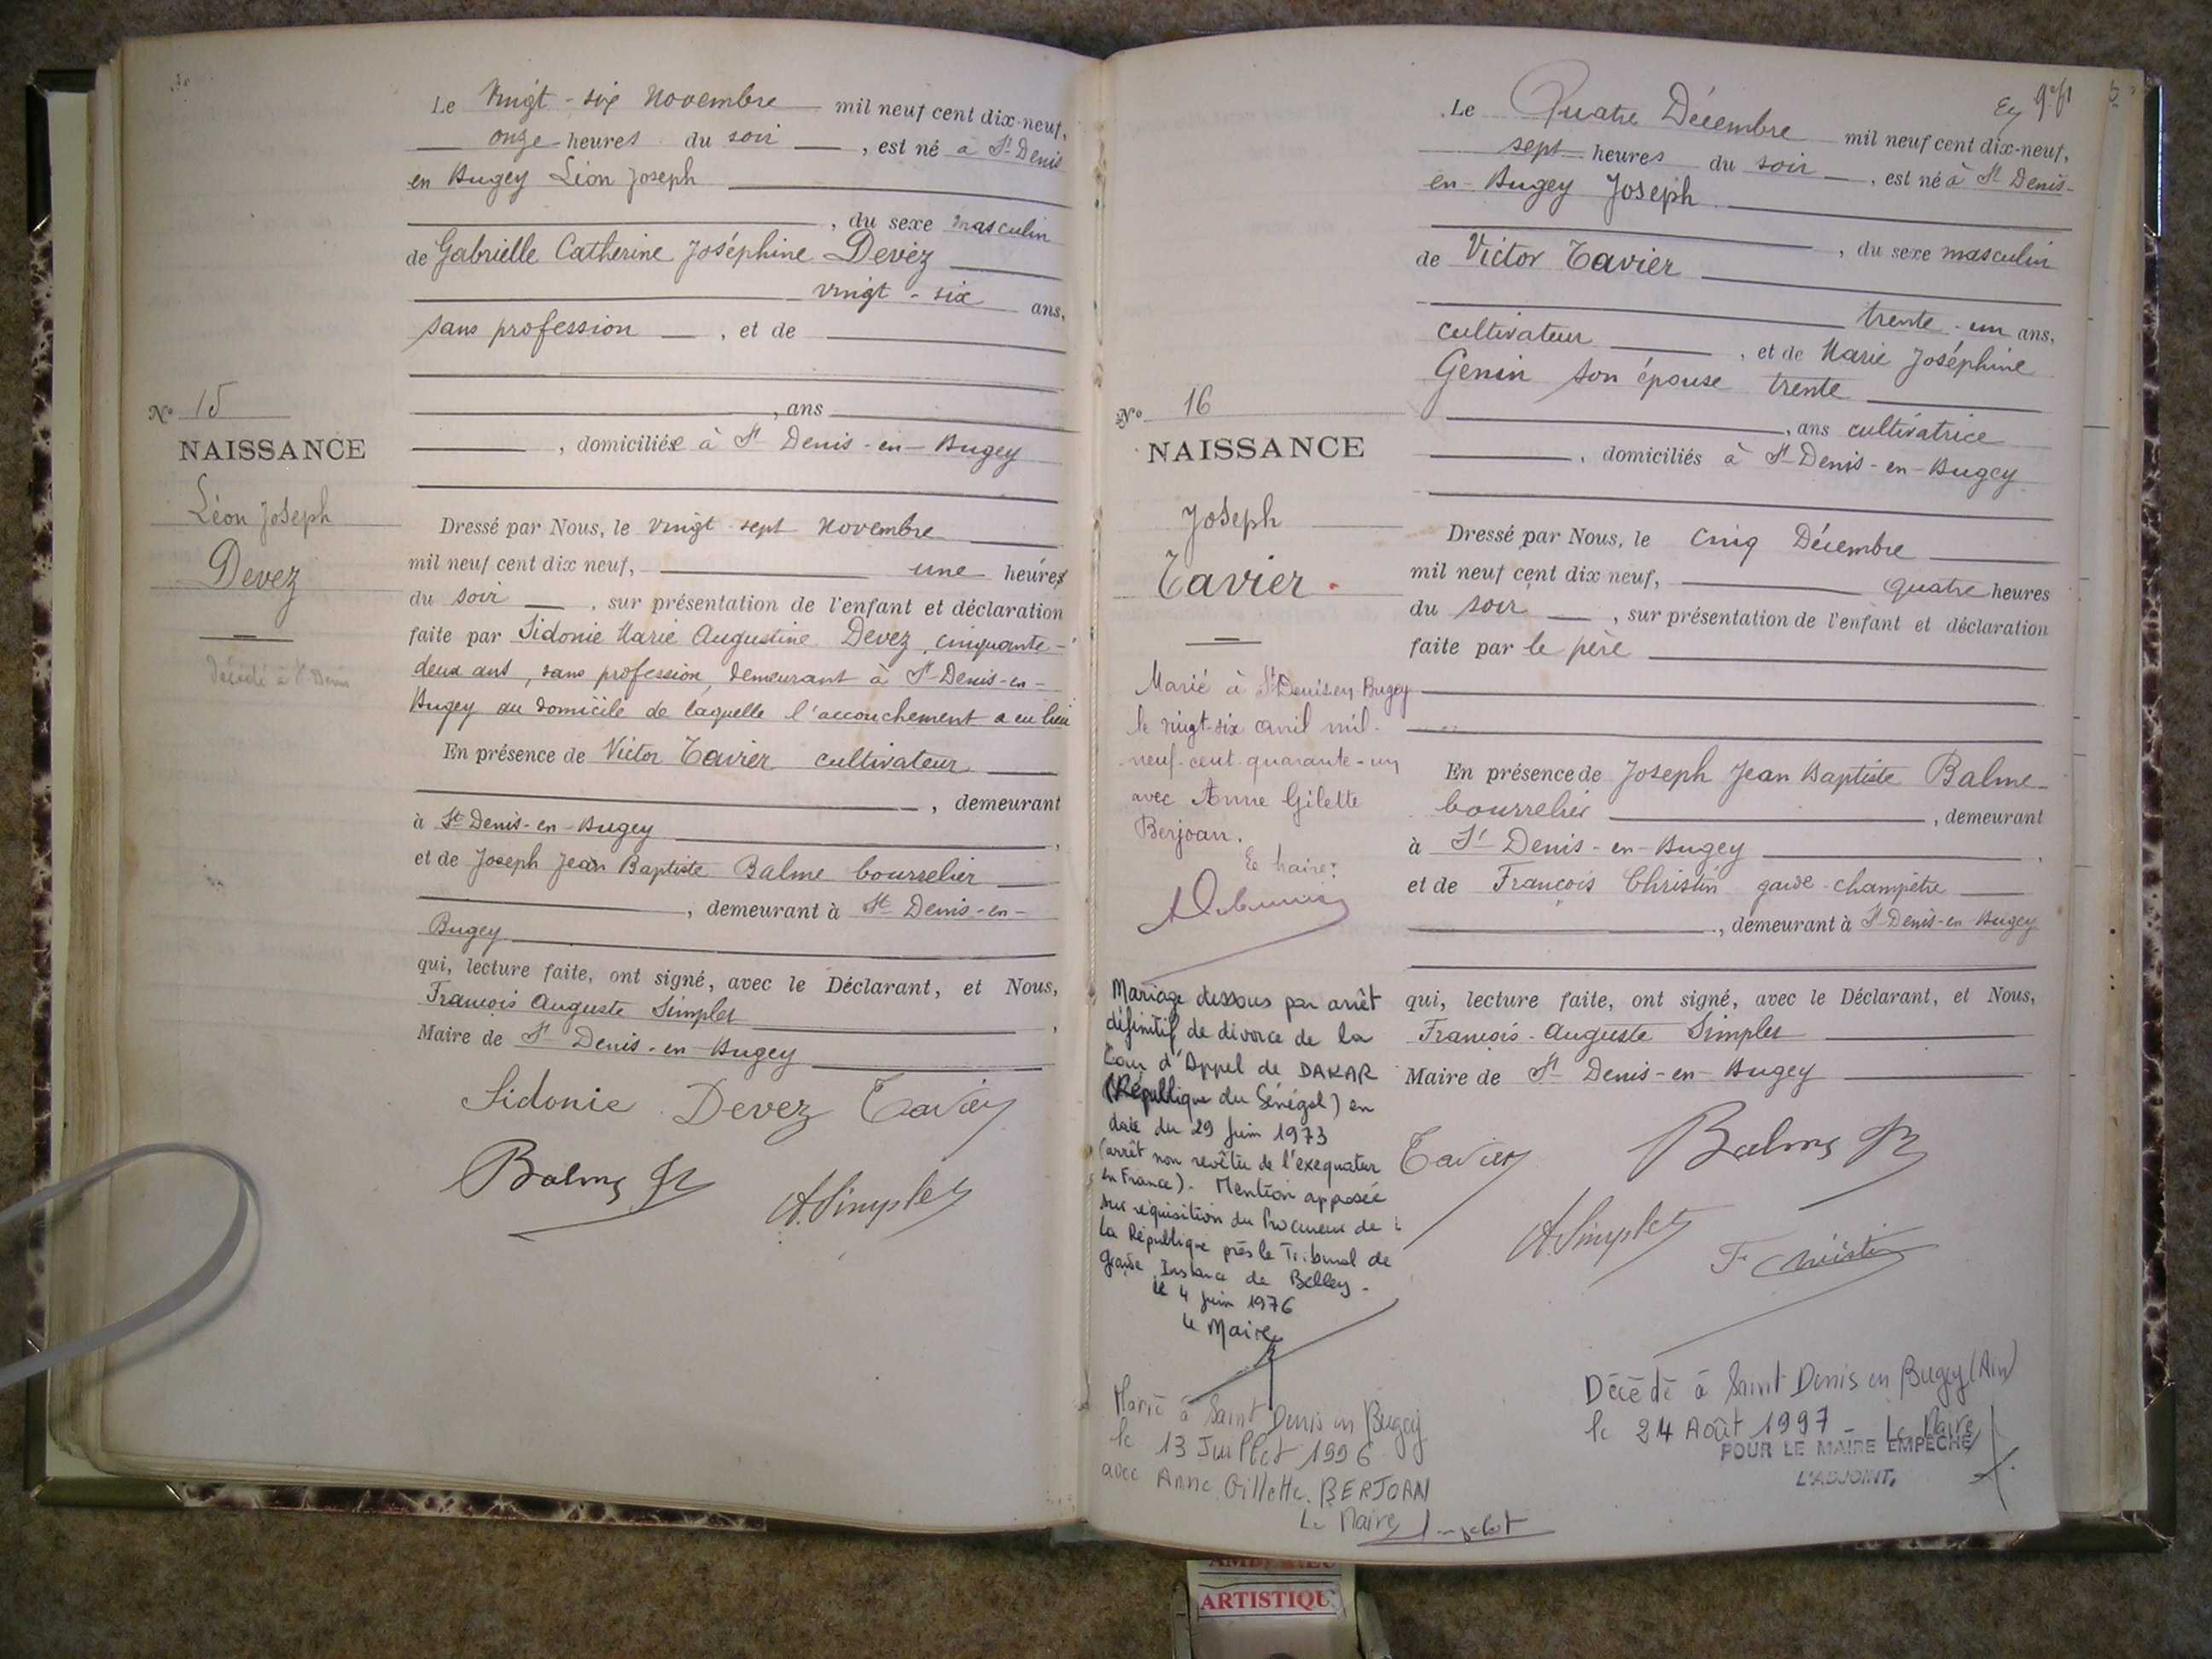 Le Vingt-six Novembre mil neuf cent dix-neuf,
onze heures du soir, est né à St Denis
en Bugey Léon Joseph
, du sexe masculin
de Gabrielle Catherine Joséphine Devez
vingt-six ans,
sans profession, et de
, ans
, domiciliée à St Denis-en-Bugey
No 15
NAISSANCE
Léon Joseph
Devez
Décédé à St Denis
Dressé par Nous, le vingt sept Novembre
mil neuf cent dix neuf, une heures
du soir, sur présentation de l'enfant et déclaration
faite par Sidonie Marie Augustine Devez, cinquante-
deux ans, sans profession, demeurant à St Denis-en-
Bugey au domicile de laquelle l'accouchement a eu lieu
En présence de Victor Tavier cultivateur
, demeurant
à St Denis-en-Bugey,
et de Joseph Jean Baptiste Balme bourrelier
, demeurant à St Denis-en-
Bugey
qui, lecture faite, ont signé, avec le Déclarant, et Nous,
François Auguste Simplet,
Maire de St Denis-en-Bugey
Sidonie Devez Tavier
Balme
A. Simplet
Le Quatre Décembre mil neuf cent dix-neuf,
sept heures du soir, est né à St Denis-
en-Bugey Joseph
, du sexe masculin
de Victor Tavier
trente-un ans,
cultivateur, et de Marie Joséphine
Genin son épouse trente
, ans cultivatrice
, domiciliés à St Denis-en-Bugey
No 16
NAISSANCE
Joseph
Tavier.
Marié à St Denis en Bugey
le vingt-six avril mil
neuf-cent-quarante-un
avec Anne Gilette
Berjoan.
Le Maire:
Mariage dissous par arrêt
définitif de divorce de la
Cour d'Appel de DAKAR
(République du Sénégal) en
date du 29 Juin 1973
(arrêt non revêtu de l'exequatur
en France). Mention apposée
sur réquisition du Procureur de
la République près le Tribunal de
Grande Instance de Belley.
le 4 Juin 1976
Le Maire
Marié à Saint Denis en Bugey
le 13 Juillet 1996
avec Anne Gillette BERJOAN
Le Maire
Dressé par Nous, le cinq Décembre
mil neuf cent dix neuf, quatre heures
du soir, sur présentation de l'enfant et déclaration
faite par le père
En présence de Joseph Jean Baptiste Balme
bourrelier, demeurant
à St Denis-en-Bugey,
et de François Christin garde-champêtre
, demeurant à St Denis-en-Bugey
qui, lecture faite, ont signé, avec le Déclarant, et Nous,
François-Auguste Simplet
Maire de St Denis-en-Bugey
Tavier Balme
A. Simplet F. Christin
Décédé à Saint Denis en Bugey (Ain)
le 24 Août 1997 - Le Maire
POUR LE MAIRE EMPECHE
L'ADJOINT,
ARTISTIQU